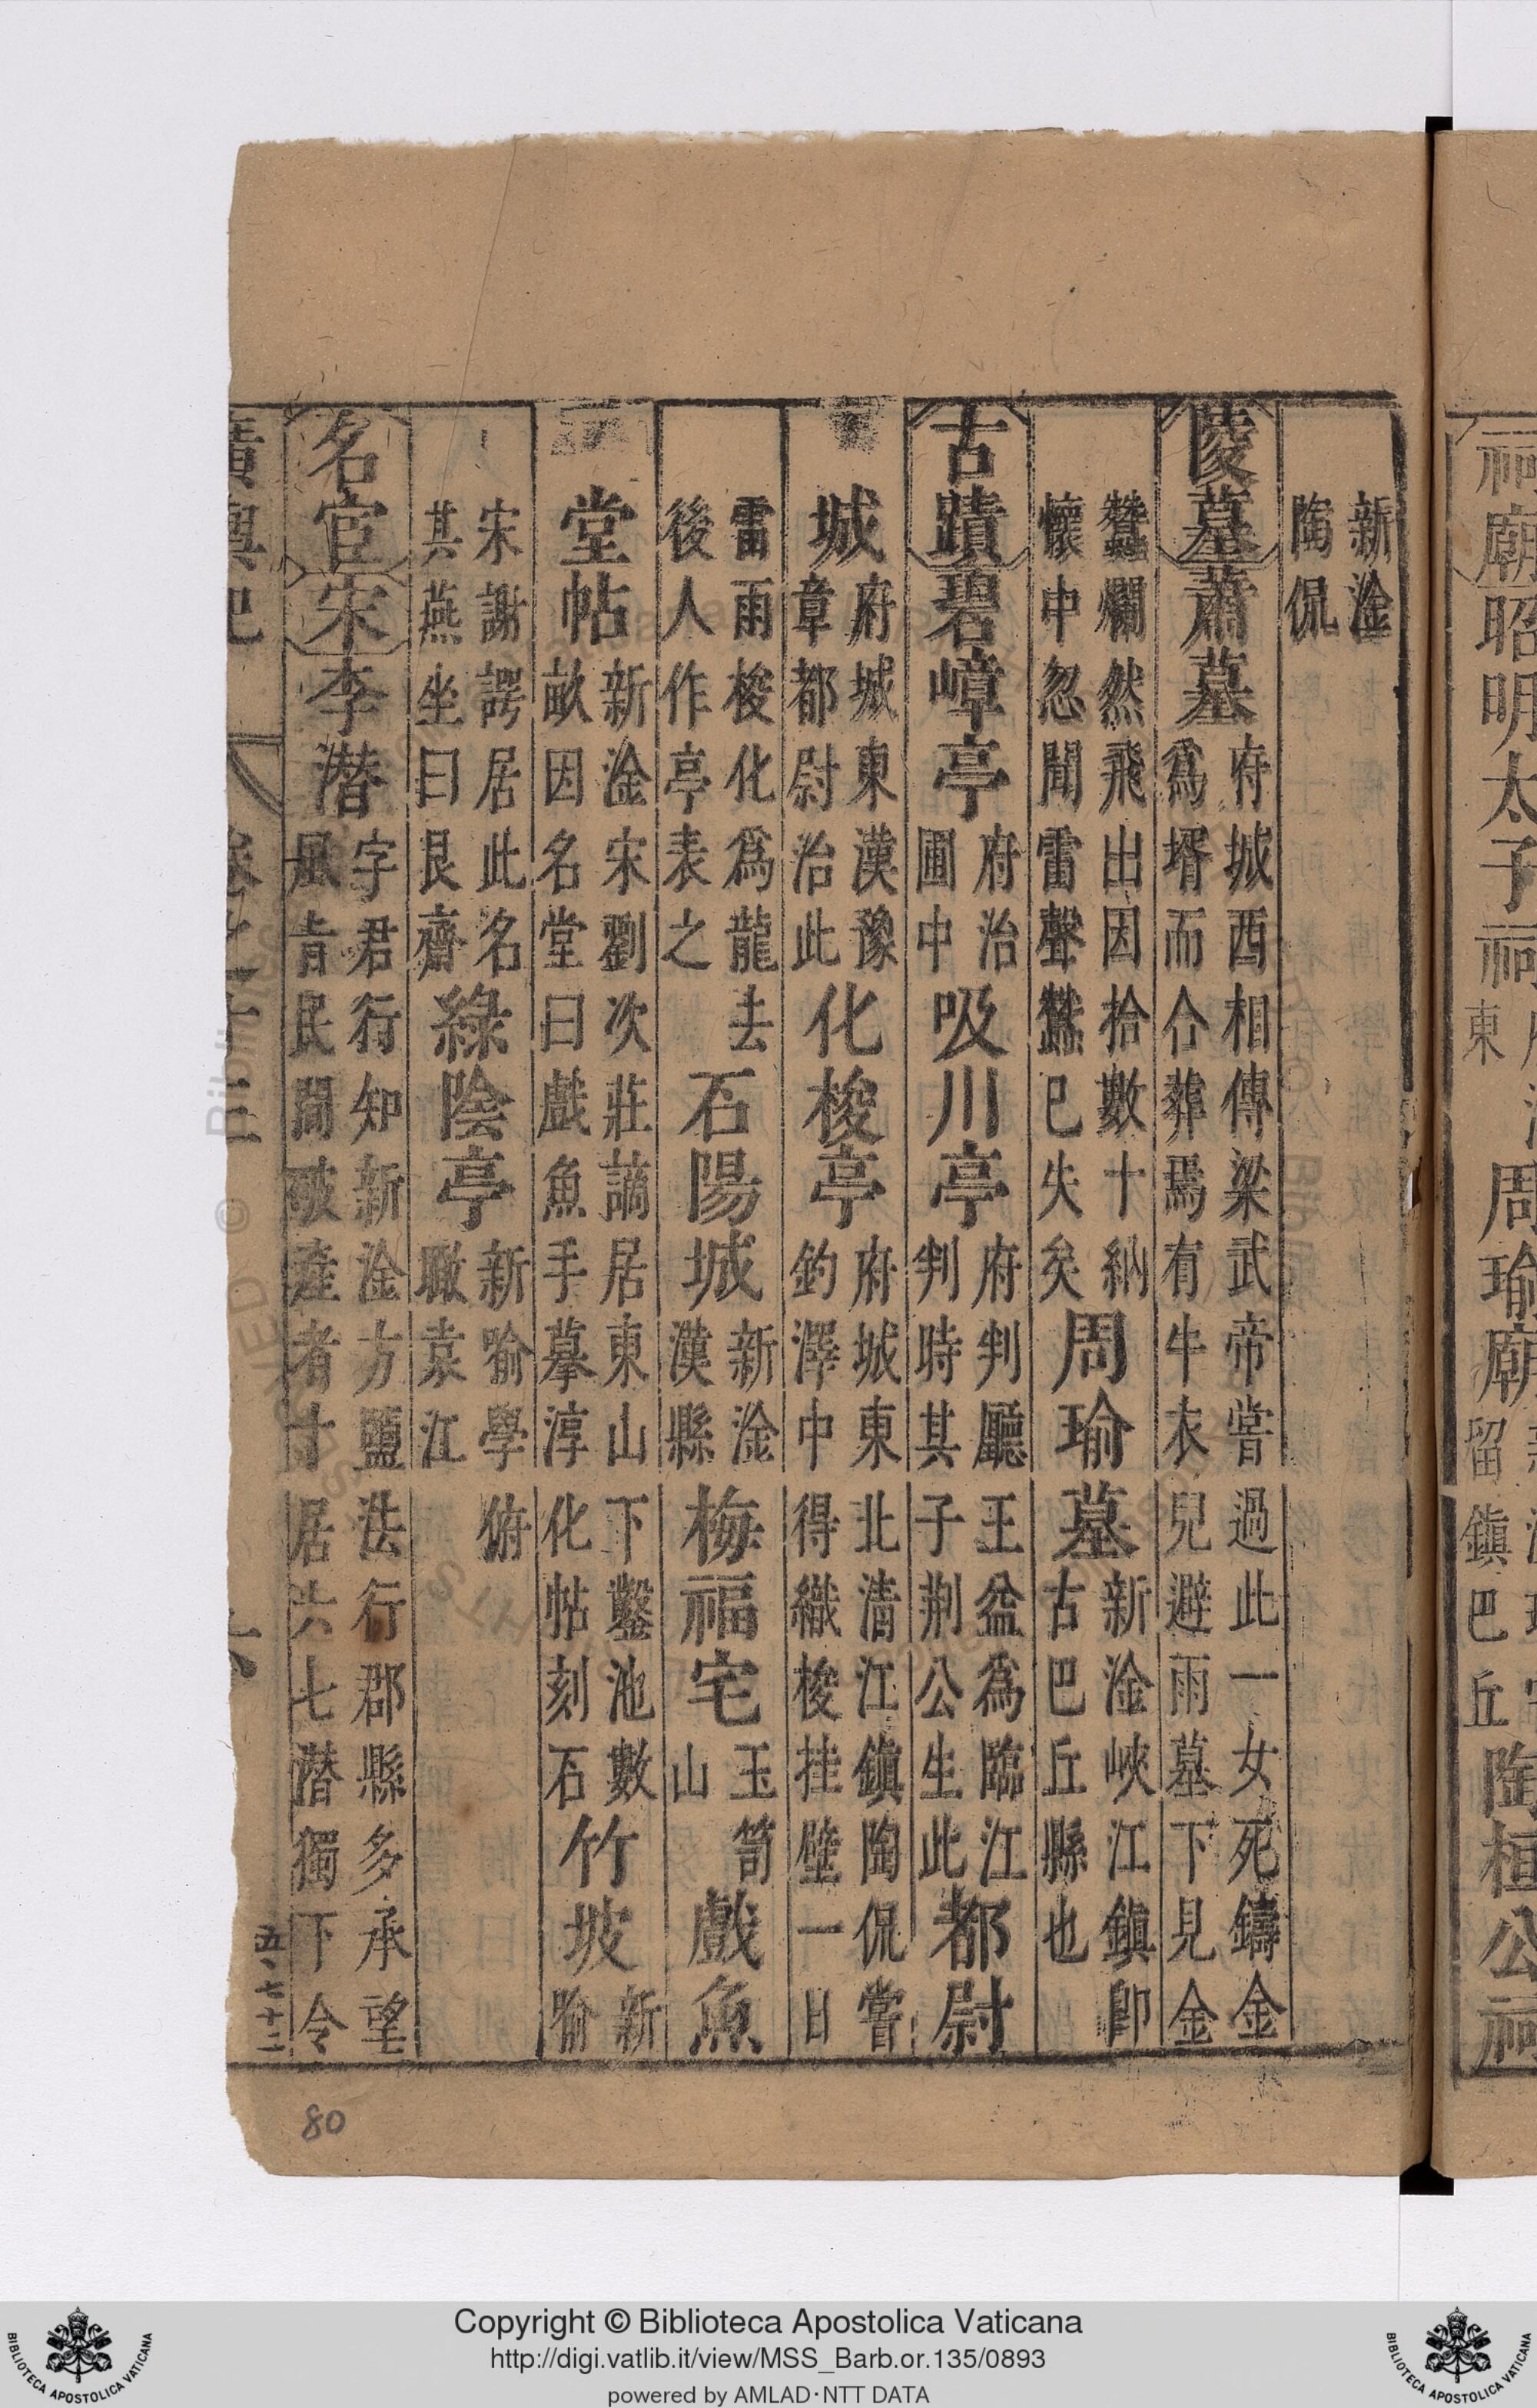 祠廟昭明太子祠
東
周瑜廟
留鎮巴丘
陶桓公祠
新淦
陶侃
陵墓蕭墓府城西相傳梁武帝嘗過此一女死鑄金
爲壻而仆葬焉有牛衣兒避雨墓下見金
蠶爛然飛出因拾數十納
懷中忽聞雷聲蠶已失矣
周瑜墓新淦峽江鎮即
古巴丘縣也
古蹟碧嶂亭府治
圃中
吸川亭府判廳王益爲臨江
判時其子荆公生此
都尉
城府城東漢豫
章都尉治此
化梭亭府城東北清江鎮陶侃嘗
釣澤中得織梭挂壁一日
雷雨梭化爲龍去
後人作亭表之
石陽城新淦
漢縣
梅福宅玉笥
山
戲魚
堂帖新淦宋劉次莊謫居東山下鑿池數
畝因名堂曰戲魚手摹淳化帖刻石
竹坡新
喻
宋謝諤居此名
其燕坐曰艮齋
綠陰亭新喻學俯
瞰袁江
名宦宋李潛字君行知新淦方鹽法行郡縣多承望
風肯民間破產者十居六七潛獨下令
廣輿記
卷之十三
六
五、七十二
80
Copyright © Biblioteca Apostolica Vaticana
http://digi.vatlib.it/view/MSS_Barb.or.135/0893
powered by AMLAD·NTT DATA
BIBLIOTECA APOSTOLICA VATICANA
BIBLIOTECA APOSTOLICA VATICANA